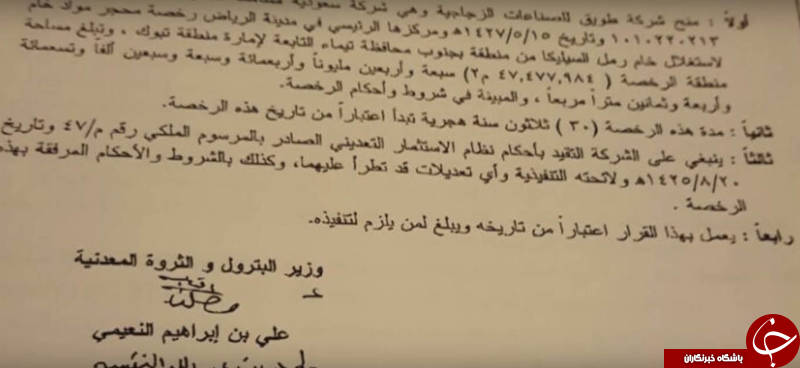 أولاً : منح شركة طويق للصناعات الزجاجية وهي شركة سعودية
١٠١٠٢٢٠٢١٣ وتاريخ ١٤٢٧/٥/١٥هـ ومركزها الرئيسي في مدينة الرياض رخصة محجر مواد خام
لاستغلال خام رمل السيليكا من منطقة بجنوب محافظة تيماء التابعة لإمارة منطقة تبوك ، وتبلغ مساحة
منطقة الرخصة ( ٤٧,٤٧٧,٩٨٤ م٢) سبعة وأربعين مليوناً وأربعمائة وسبعة وسبعين ألفا وتسعمائة
وأربعة وثمانين متراً مربعاً ، والمبينة في شروط وأحكام الرخصة.
ثانياً : مدة هذه الرخصة (٣٠ ) ثلاثون سنة هجرية تبدأ اعتباراً من تاريخ هذه الرخصة.
ثالثاً : ينبغي على الشركة التقيد بأحكام نظام الاستثمار التعديني الصادر بالمرسوم الملكي رقم م/٤٧ وتاريخ
١٤٢٥/٨/٢٠هـ ولائحته التنفيذية وأي تعديلات قد تطرأ عليهما، وكذلك بالشروط والأحكام المرفقة بهذه
الرخصة .
رابعاً : يعمل بهذا القرار اعتباراً من تاريخه ويبلغ لمن يلزم لتنفيذه.
وزير البترول و الثروة المعدنية
علي بن إبراهيم النعيمي
باشگاه خبرنگاران